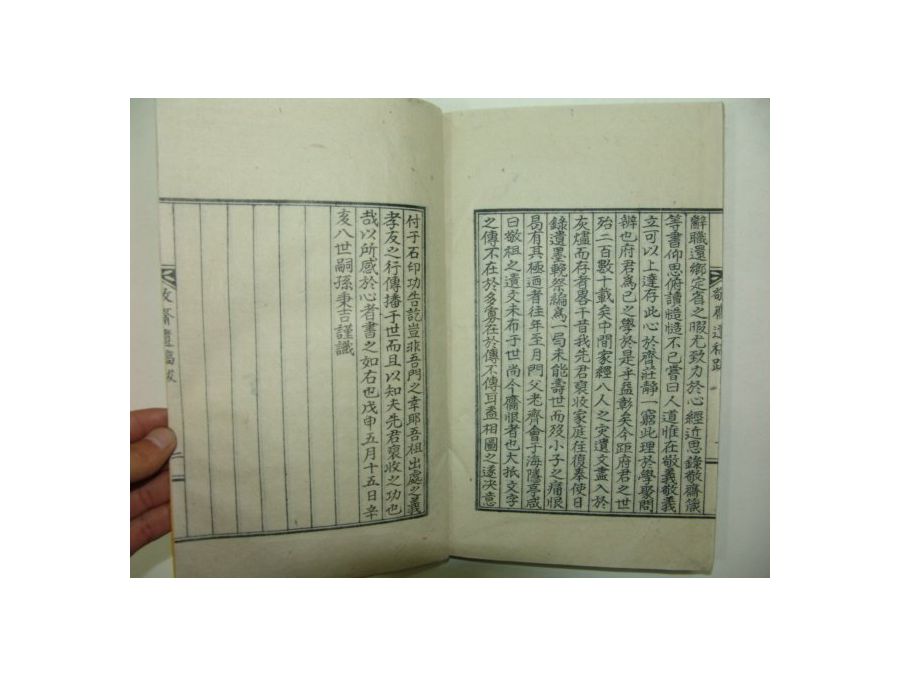 辭職還鄉定省之暇尤致力於心經近思錄敬齋箴
等書仰思俯讀慥慥不已嘗曰人道惟在敬義敬義
立可以上達存此心於齊莊靜一窮此理於學聚問
辨也府君爲己之學於是乎益彰矣今距府君之世
殆二百數十載矣中間家經八人之灾遺文盡入於
灰燼而存者畧干昔我先君裒收家庭往復奉使日
錄遺墨輓祭編爲一局未能壽世而歿小子之痛恨
曷有其極迺者往年至月門父老齊會于海隱亭咸
曰敬祖之遺文未布于世尚今齎恨者也大抵文字
之傳不在於多寡在於傳不傳耳盍相圖之遂决意
付于石印功告訖豈非吾門之幸耶吾祖出處之義
孝友之行傳播于世而且以知夫先君裒收之功也
哉以所感於心者書之如右也戊申五月十五日辛
亥八世嗣孫秉吉謹識